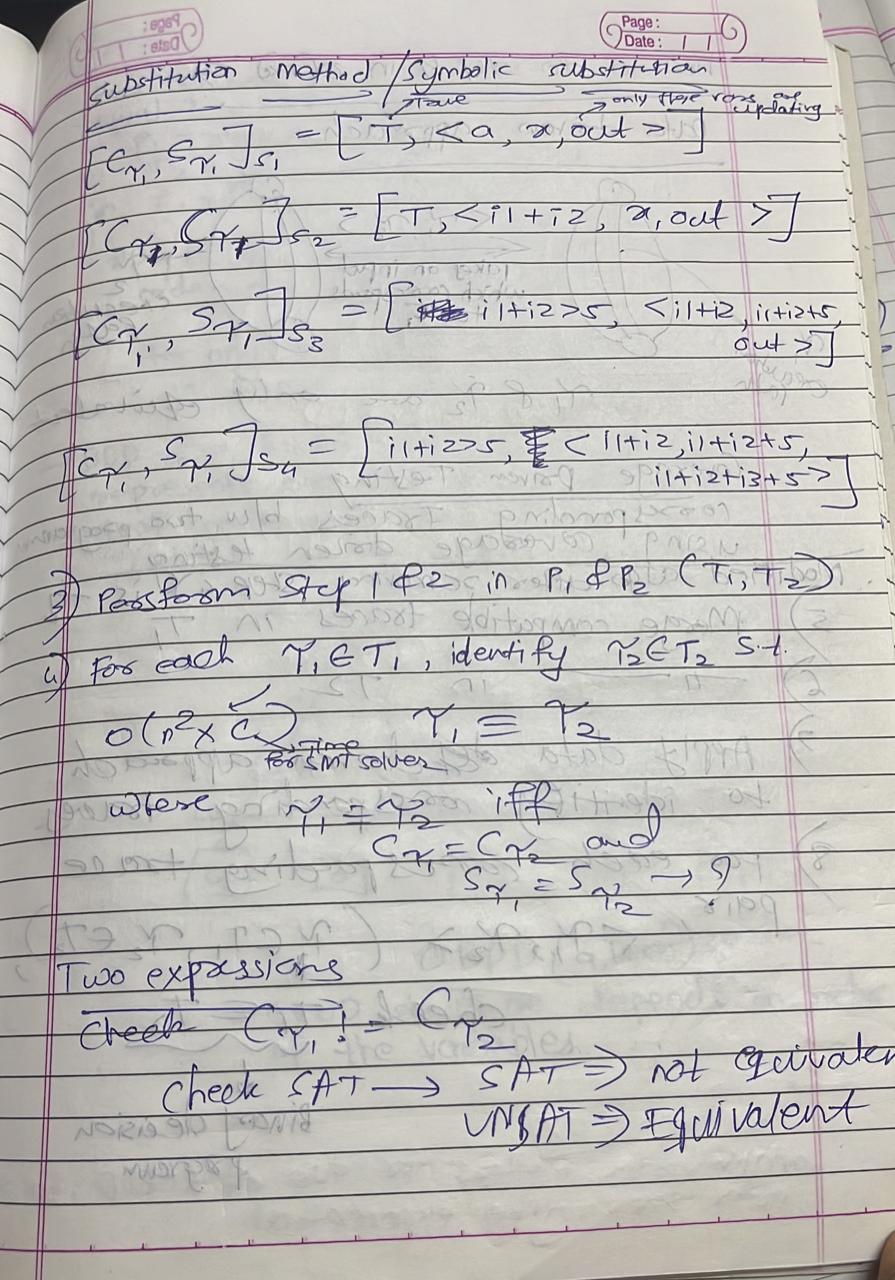 Page:
Date: | |
substitution Method / Symbolic substitution
True only these vars are updating
[Cτ₁, Sτ₁]S₁ = [T, <a, x, out>]
[Cτ₁, Sτ₁]S₂ = [T, <i1+i2, x, out>]
[Cτ₁, Sτ₁]S₃ = [i1+i2>5, <i1+i2, i1+i2+5,
out>]
[Cτ₁, Sτ₁]S₄ = [i1+i2>5, < i1+i2, i1+i2+5,
i1+i2+i3+5>]
3) Persform Step 1 & 2 in P₁ & P₂ (T₁, T₂)
4) For each τ₁ ∈ T₁, identify τ₂ ∈ T₂ s.t.
O(n² x C) τ₁ ≡ τ₂
time
for SMT solver
where τ₁ = τ₂ iff
Cτ₁ = Cτ₂ and
Sτ₁ = Sτ₂ →
Two expressions
Check Cτ₁ != Cτ₂
Check SAT → SAT ⇒ not equivalen
UNSAT ⇒ Equivalent